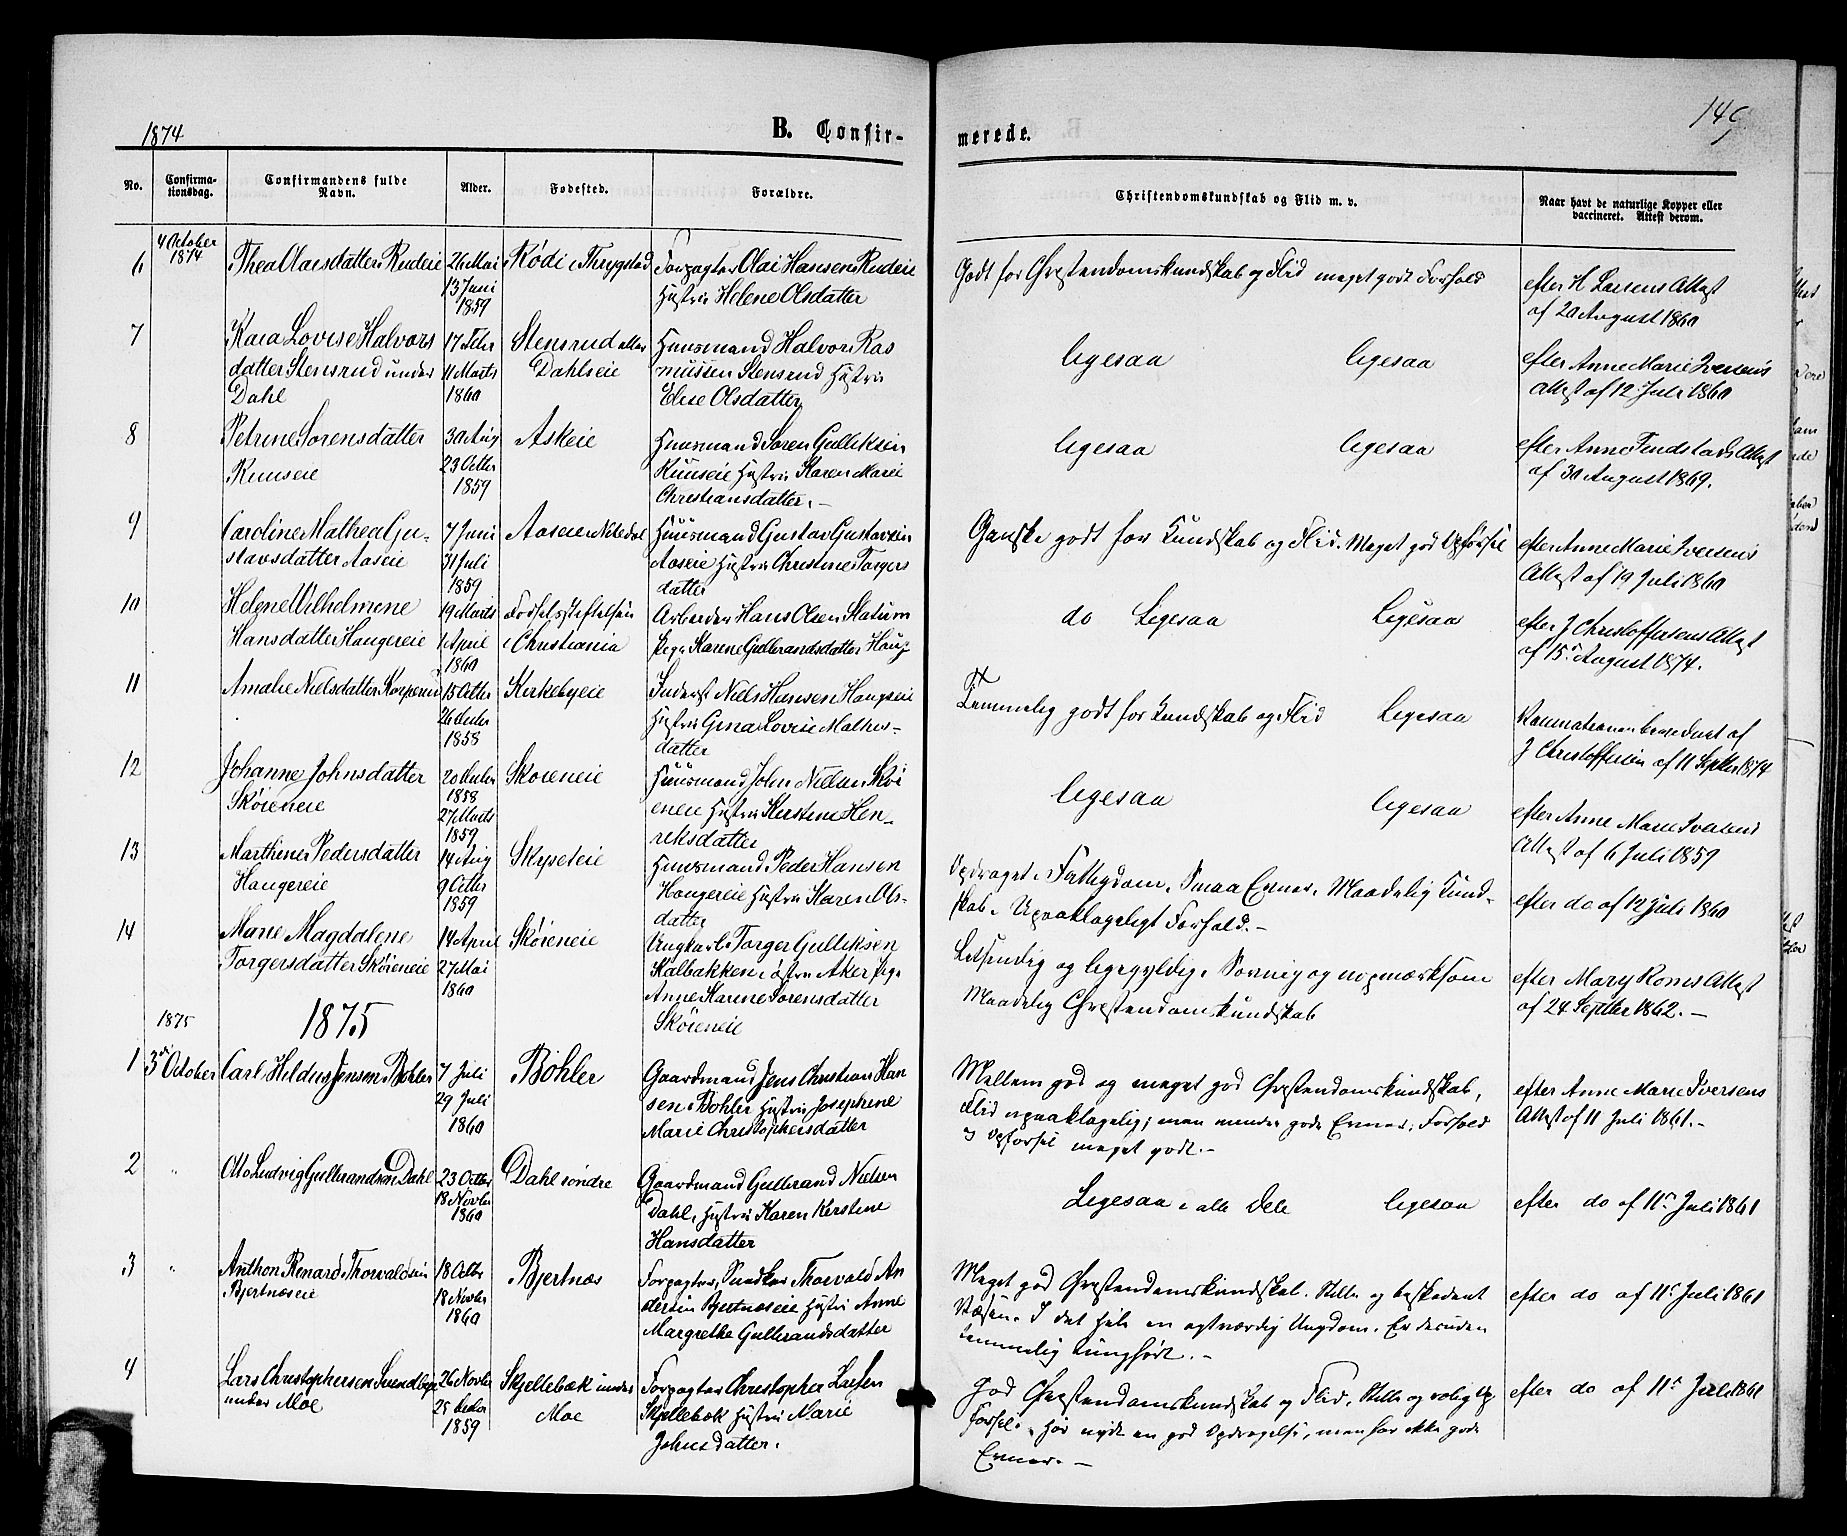 1874
B. Confir-
merede.
149
No.
Confirma-
tionsdag.
Confirmandens fulde
Navn.
Alder.
Fødested.
Forældre.
Christendomskundskab og Flid m. v.
Naar havt de naturlige Kopper eller
vaccineret. Attest derom.
6
4 October
1874
Thea Olaisdatter Rudeie
26 Mai
13 Juni
1859
Rødi i Thrygstad
Forpagter Olai Hansen Rudeie
Hustru Helene Olsdatter
Godt for Christendomskundskab og Flid meget godt Forhold
efter H Larsens Attest
af 20 August 1860
7
Kaia Lovise Halvors
datter Stensrud under
Dahl
17 Febr
11 Marts
1860
Stensrud eller
Dahlseie
Huusmand Halvor Ras
mussen Stensrud Hustru
Elise Olsdatter
ligesaa ligesaa
efter Anne Marie Iversens
Attest af 12 Juli 1860
8
Petrine Sorensdatter
Ruuseie
30 Aug
23 Octbr
1859
Askeie
Huusmand Soren Gulliksen
Ruuseie Hustru Karen Marie
Christiansdatter. -
ligesaa ligesaa
efter Anne Tendstads Attest
af 30 August 1869.
9
Caroline Mathea Gu-
stavsdatter Aaseie
7 Juni
31 Juli
1859
Aaseie Nitedal
Huusmand Gustav Gustavsen
Aaseie Hustru Christine Torgers
datter
Ganske godt for Kundskab og Flid. Meget god Opførsel
efter Anne Marie Iversens
Attest af 19 Juli 1860
10
Helene Wilhelmine
Hansdatter Haugereie
19 Marts
1 April
1860
Fødselsstiftelsen
i Christiania
Arbeider Hans Olsen Statum
Pige Karene Gulbrandsdatter Haug
do Ligesaa Ligesaa
efter J Christoffersens Attest
af 15 August 1874.
11
Amalie Nielsdatter Korperud
15 Octbr
26 Decbr
1858
Kirkebyeie
Inderst Niels Hansen Haugseie
Hustru Gina Lovise Mathis-
datter
Temmelig godt for Kundskab og Flid Ligesaa
Vaccinationen bevidnet af
J Christoffersen af 11 Septbr 1874
12
Johanne Johnsdatter
Skøieneie
20 Decbr
1858
27 Marts
1859
Skøieneie
Huusmand John Nielsen Skøi
eneie Hustru Kirstine Hen-
riksdatter
ligesaa ligesaa
efter Anne Marie Iversens
Attest af 6 Juli 1859
13
Marthine Pedersdatter
Haugereie
14 Aug
9 Octbr
1859
Skyseteie
Huusmand Peder Hansen
Haugereie Hustru Karen Ols-
datter
Opdraget i Fattigdom. Smaa Evner. Maadelig Kund-
skab. Upaaklageligt Forhold. -
efter do af 12 Juli 1860
14
Marie Magdalene
Torgersdatter Skøieneie
14 April
27 Mai
1860
Skøieneie
Ungkarl Torger Gulliksen
Kalbakken i østre Aker Pige
Anne Karine Sorensdatter
Skøieneie
Letsindig og ligegyldig. Dorvig og uopmærksom
Maadelig Christendomskundskab
efter Mary Rones Attest
af 24 Septbr 1862. -
1875
1875
1
3die October
Carl Hildus Jensen Bøhler
7 Juli
29 Juli
1860
Bøhler
Gaardmand Jens Christian Han
sen Bøhler Hustru Josephine
Marie Christophersdatter
Mellem god og meget god Christendomskundskab,
Flid upaaklagelig; men mindre gode Evner. Forhold
og Opførsel meget godt. -
efter Anne Marie Iversens
Attest af 11 Juli 1861. -
2
"
Otto Ludvig Gulbrandsen Dahl
23 Octbr
18 Novbr
1860
Dahl søndre
Gaardmand Gulbrand Nielsen
Dahl, Hustru Karen Kirstine
Hansdatter
Ligesaa i alle Dele ligesaa
efter do af 11 Juli 1861
3
"
Anthon Renard Thorvaldsen
Bjertnæseie
18 Octbr
18 Novbr
1860
Bjertnæs
Forpagter, Snedker Thorvald An
dersen Bjertnæseie Hustru Anne
Margrethe Gulbrandsdatter
Meget god Christendomskundskab. Stille og beskedent
Væsen. I det Hele en agtværdig Ungdom. Er desuden
temmelig tunghørt. -
efter do af 11 Juli 1861
4
Lars Christophersen Svendberg
under Moe
26 Novbr
25 Decbr
1859
Skjellebæk under
Moe
Forpagter Christopher Larsen
Skjellebæk Hustru Marie
Johnsdatter.
God Christendomskundskab og Flid, Stille og rolig Op
førsel, har nydt en god Opdragelse, men har ikke gode
Evner. -
efter do af 11 Juli 1861